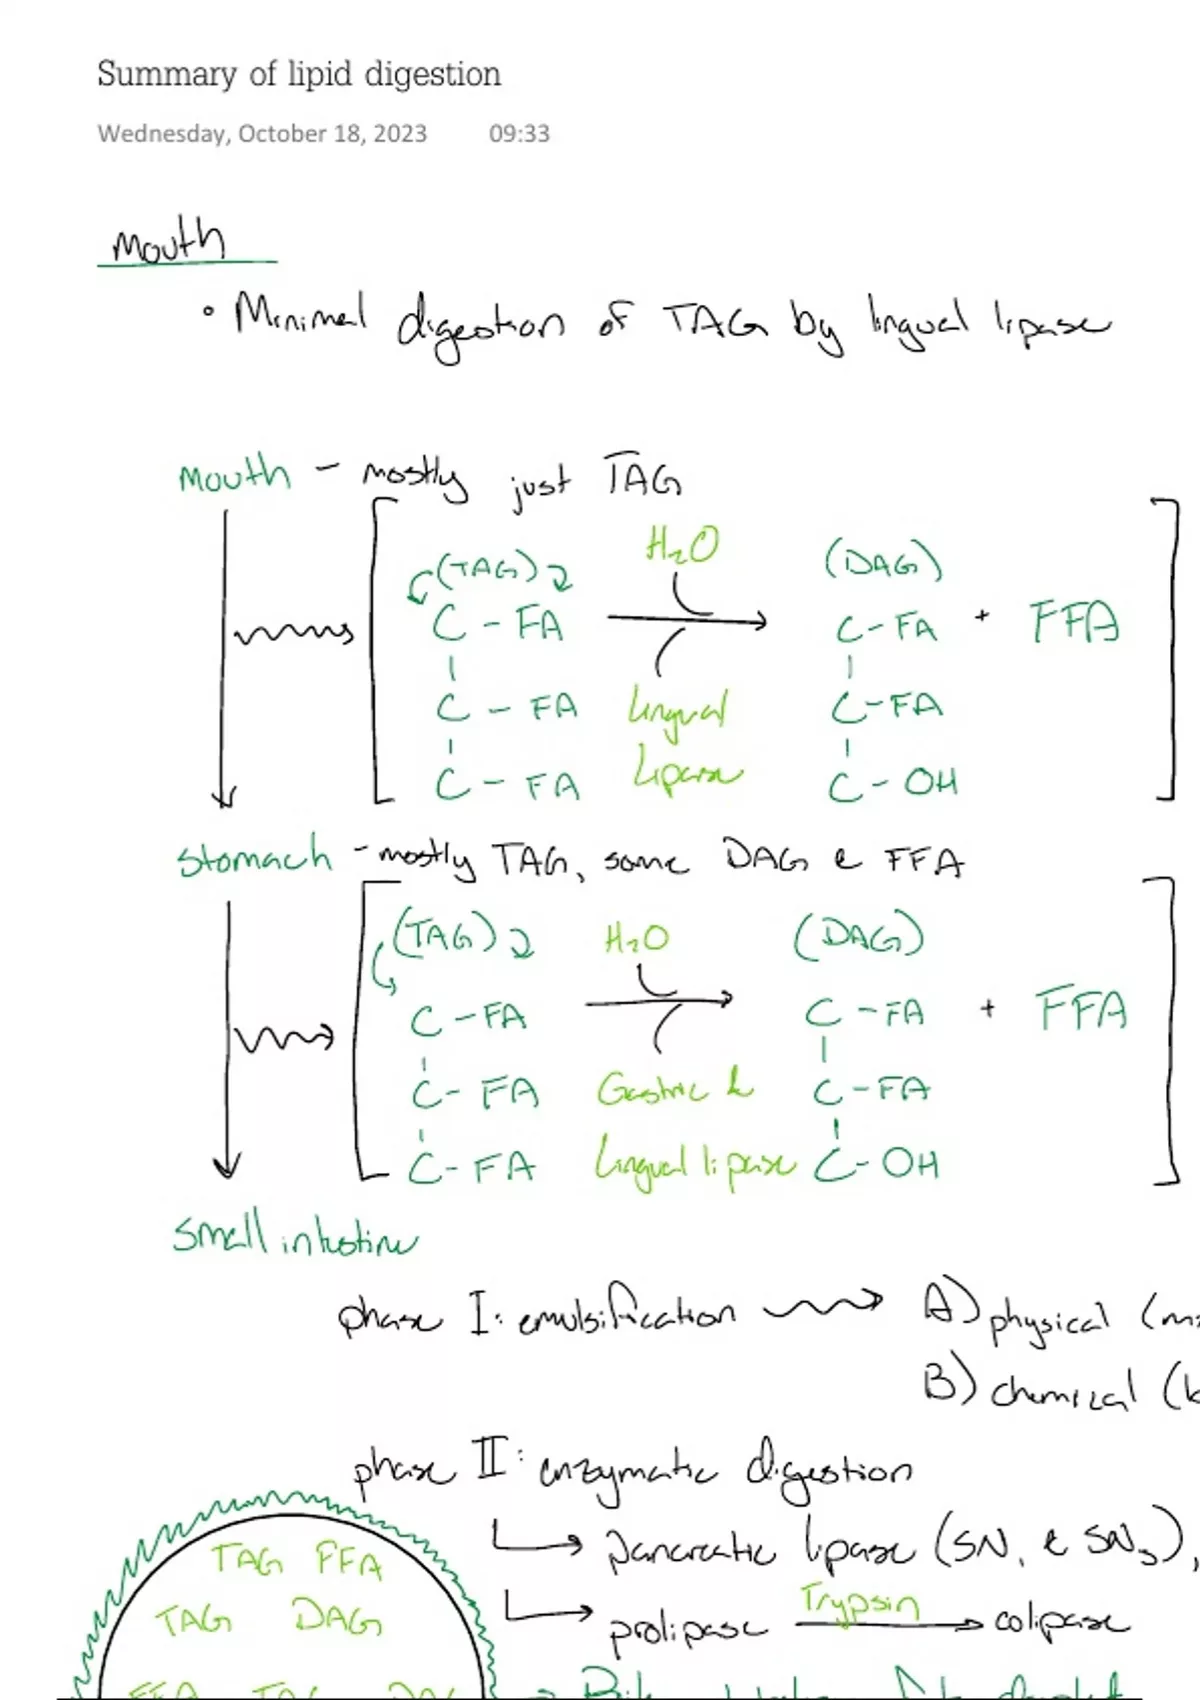 Summary of lipid digestion
Wednesday, October 18, 2023 09:33
Mouth
• Minimal digestion of TAG by lingual lipase
Mouth - mostly just TAG
(TAG) H₂O (DAG)
C - FA C - FA + FFA
C - FA Lingual C - FA
C - FA Lipase C - OH
Stomach - mostly TAG, some DAG & FFA
(TAG) H₂O (DAG)
C - FA C - FA + FFA
C - FA Gastric & C - FA
C - FA Lingual lipase C - OH
Small intestine
phase I: emulsification A) physical
B) chemical
phase II: enzymatic digestion
pancreatic lipase (SN₁ & SN₃),
TAG FFA
Trypsin
TAG DAG
prolipase colipase
FFA TAG